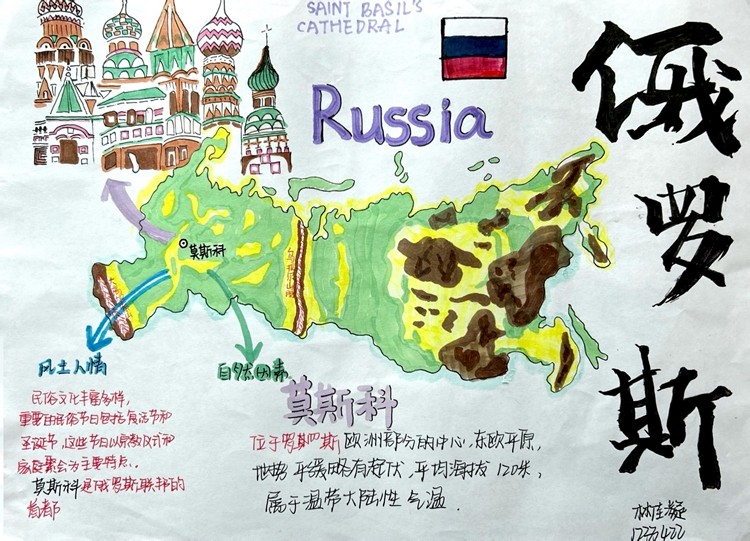 SAINT BASIL'S
CATHEDRAL
Russia
俄罗斯
莫斯科
风土人情
自然因素
民俗文化丰富多样,
重要的民俗节日包括复活节和
圣诞节,这些节日以宗教仪式和
家庭聚会为主要特点.
莫斯科是俄罗斯联邦的
首都
莫斯科
位于罗斯四斯欧洲部分的中心,东欧平原,
地势平缓略有起伏,平均海拔120米,
属于温带大陆性气温.